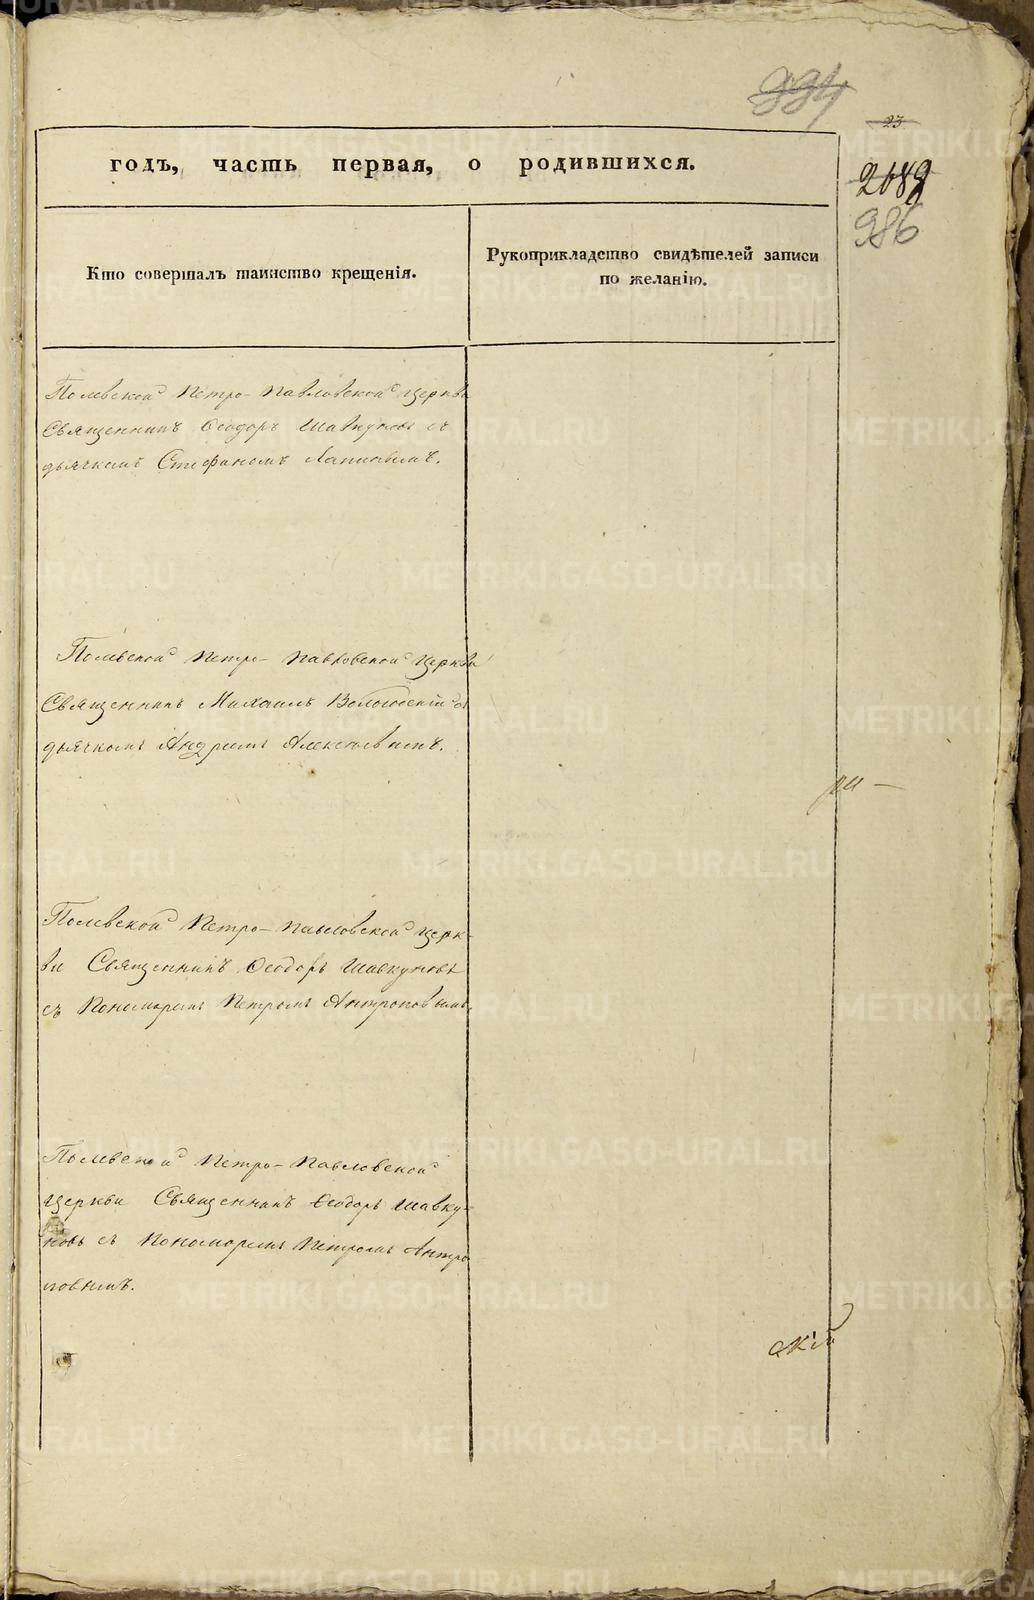 994
23
2689
986
годъ, часть первая, о родившихся.
Кто совершалъ таинство крещенія.
Рукоприкладство свидѣтелей записи
по желанію.
Полевской Петро-Павловской церкви
Священникъ Ѳеодоръ Шавкуновъ съ
дьячкомъ Стефаномъ Лапинымъ.
Полевской Петро-Павловской церкви
Священникъ Михаилъ съ
дьячкомъ Андреемъ
Полевской Петро-Павловской церк-
ви Священникъ Ѳеодоръ Шавкуновъ
съ Пономаремъ Петромъ Антроповымъ.
Полевской Петро-Павловской
церкви Священникъ Ѳеодоръ Шавку-
новъ съ Пономаремъ Петромъ Антро-
повымъ.
ри —
скій
METRIKI.GASO-URAL.RU